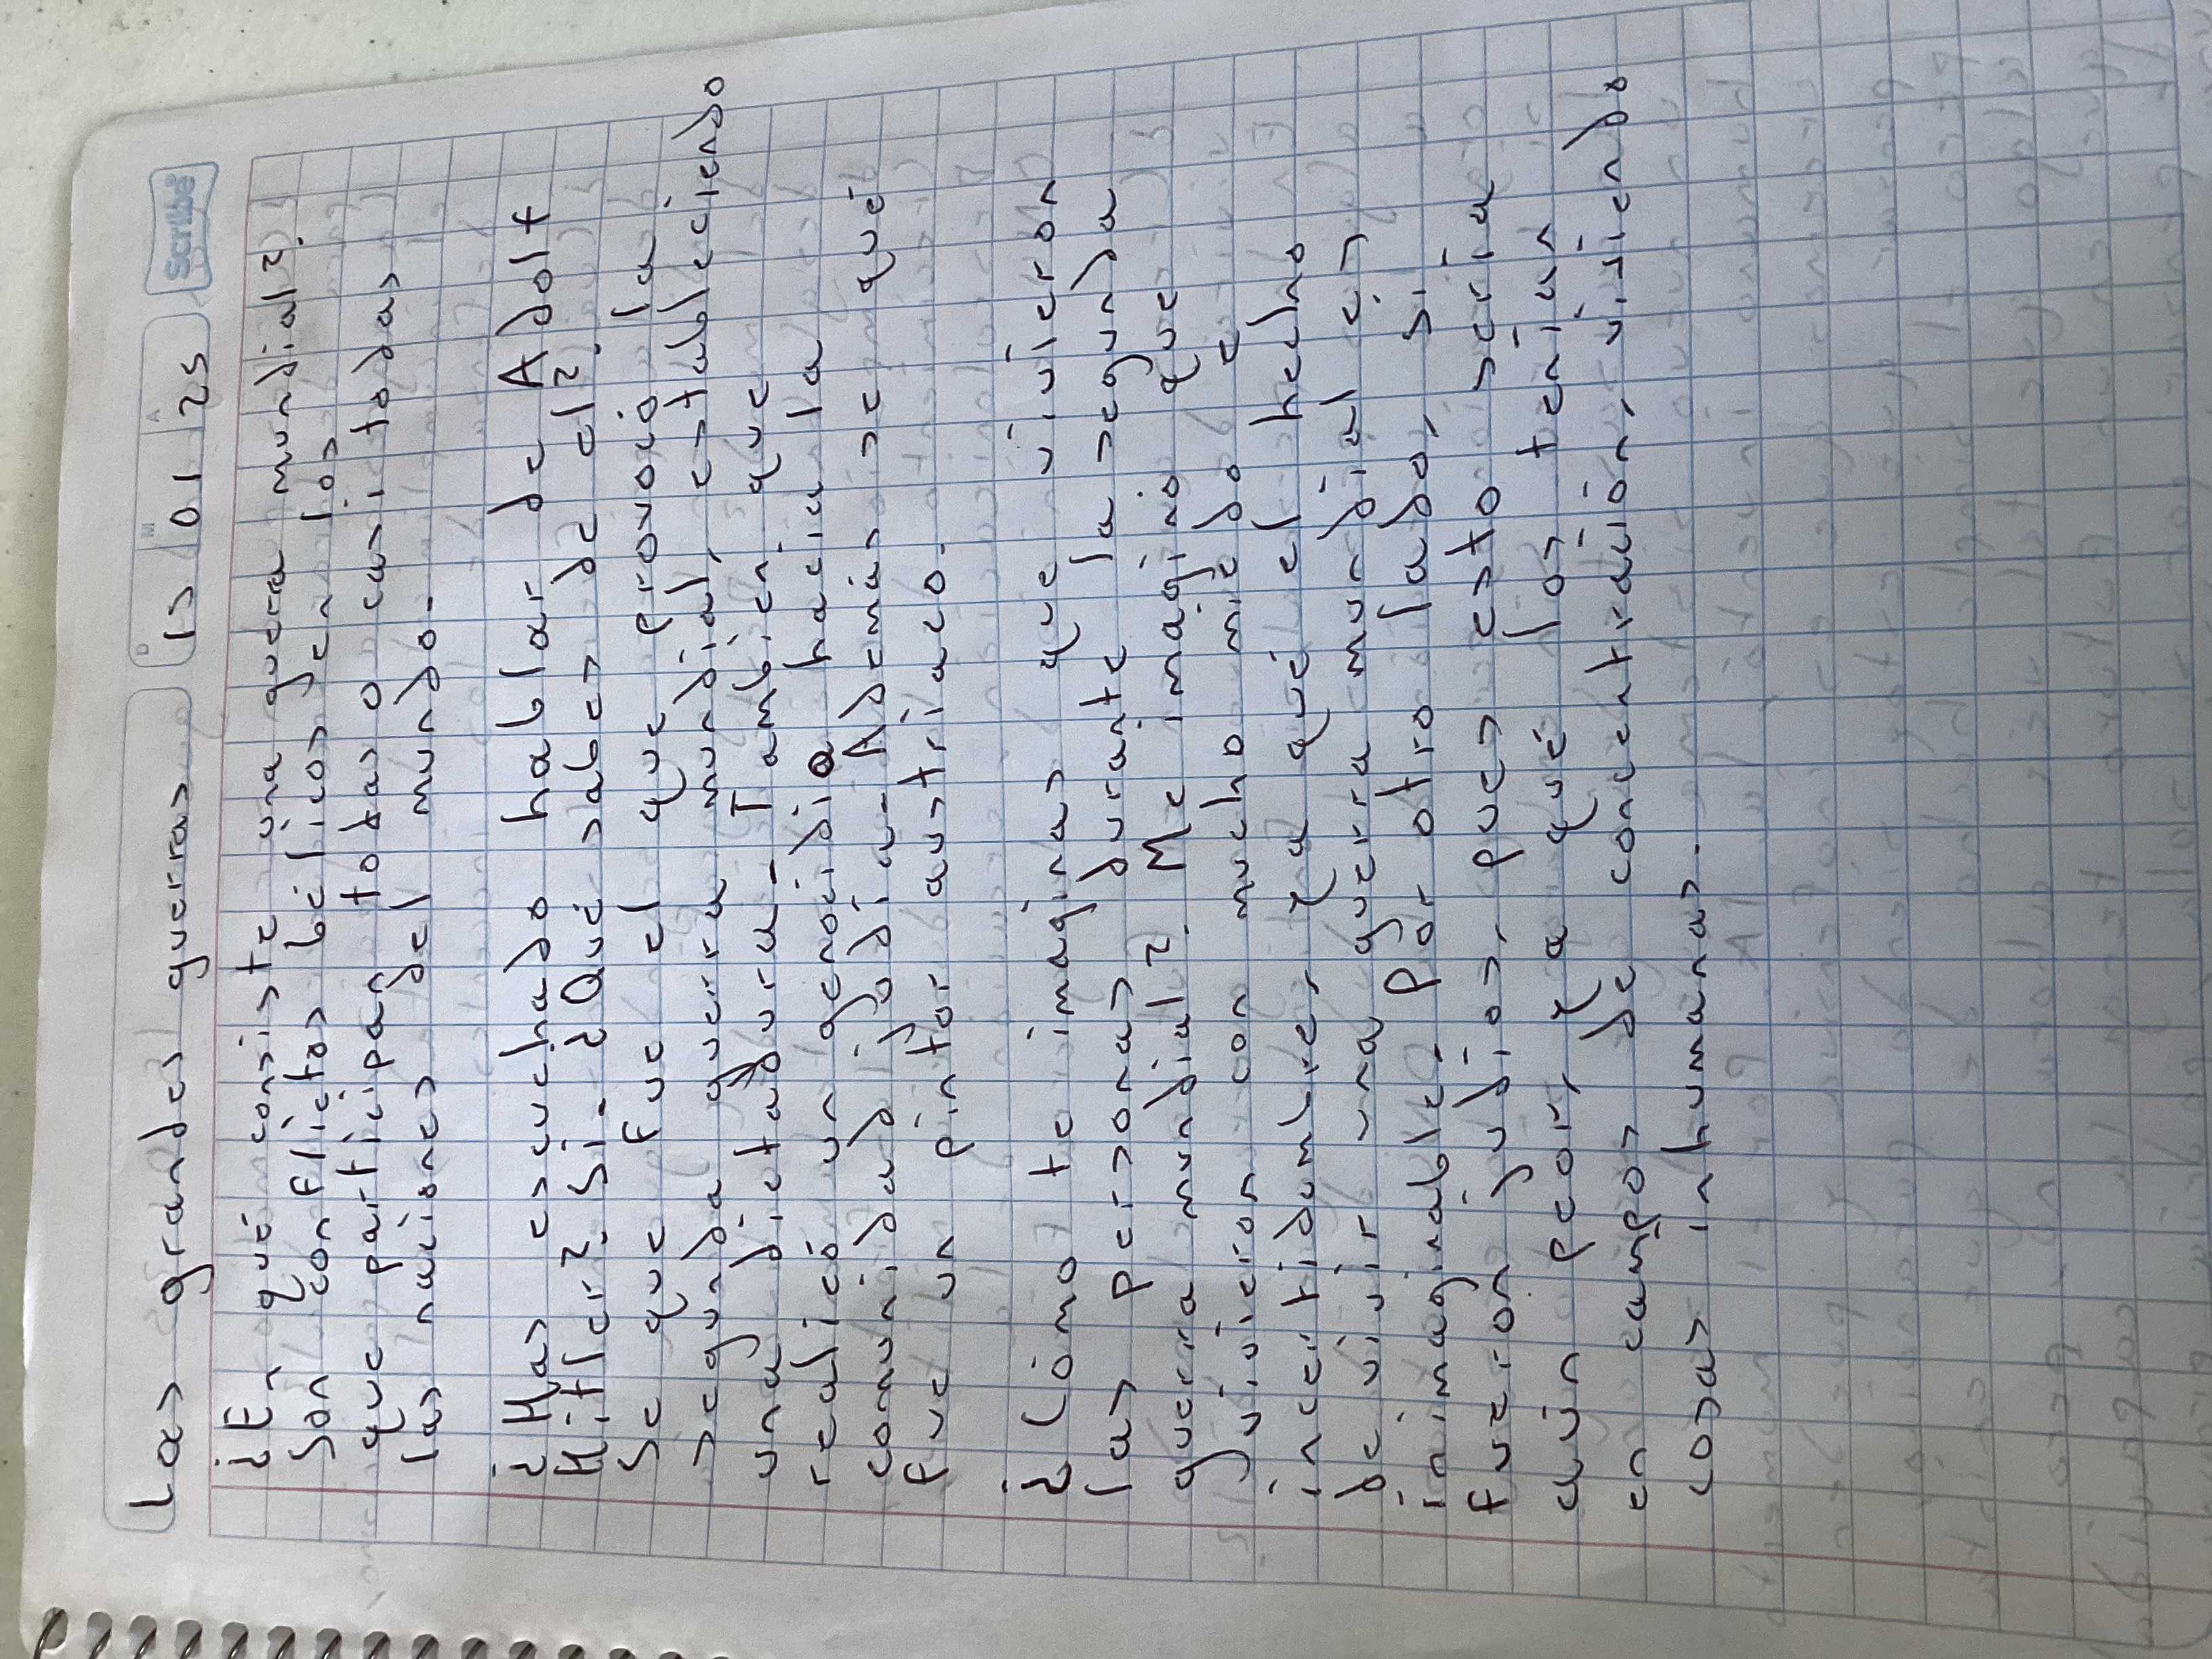 Las grandes guerras
D M A
15 01 25
Scribe
¿En qué consiste una guera mundial?.
Son conflictos bélicos gen los
que participan totas o casi todas
las naciones del mundo.
¿Has escuchado hablar de Adolf
Hitler?. Sí. ¿Qué sabes de él?.
Se que fue el que provocó la
segunda guerra mundial, estableciendo
una dictadura. También que
realizó un genocidio hacia la
comunidad judía. Además se qué
fue un pintor austríaco.
¿Cómo te imaginas que vivieron
las personas durante la segunda
guerra mundial?. Me imagino que
vivieron con mucho miedo e
incertidumbre, ya qué el hecho
de vivir una guerra mundial es
inimaginable. Por otro lado, si
fueron judíos, pues esto sería
aún peor, ya qué los tenían
en campos de concentración, viviendo
cosas inhumanas.